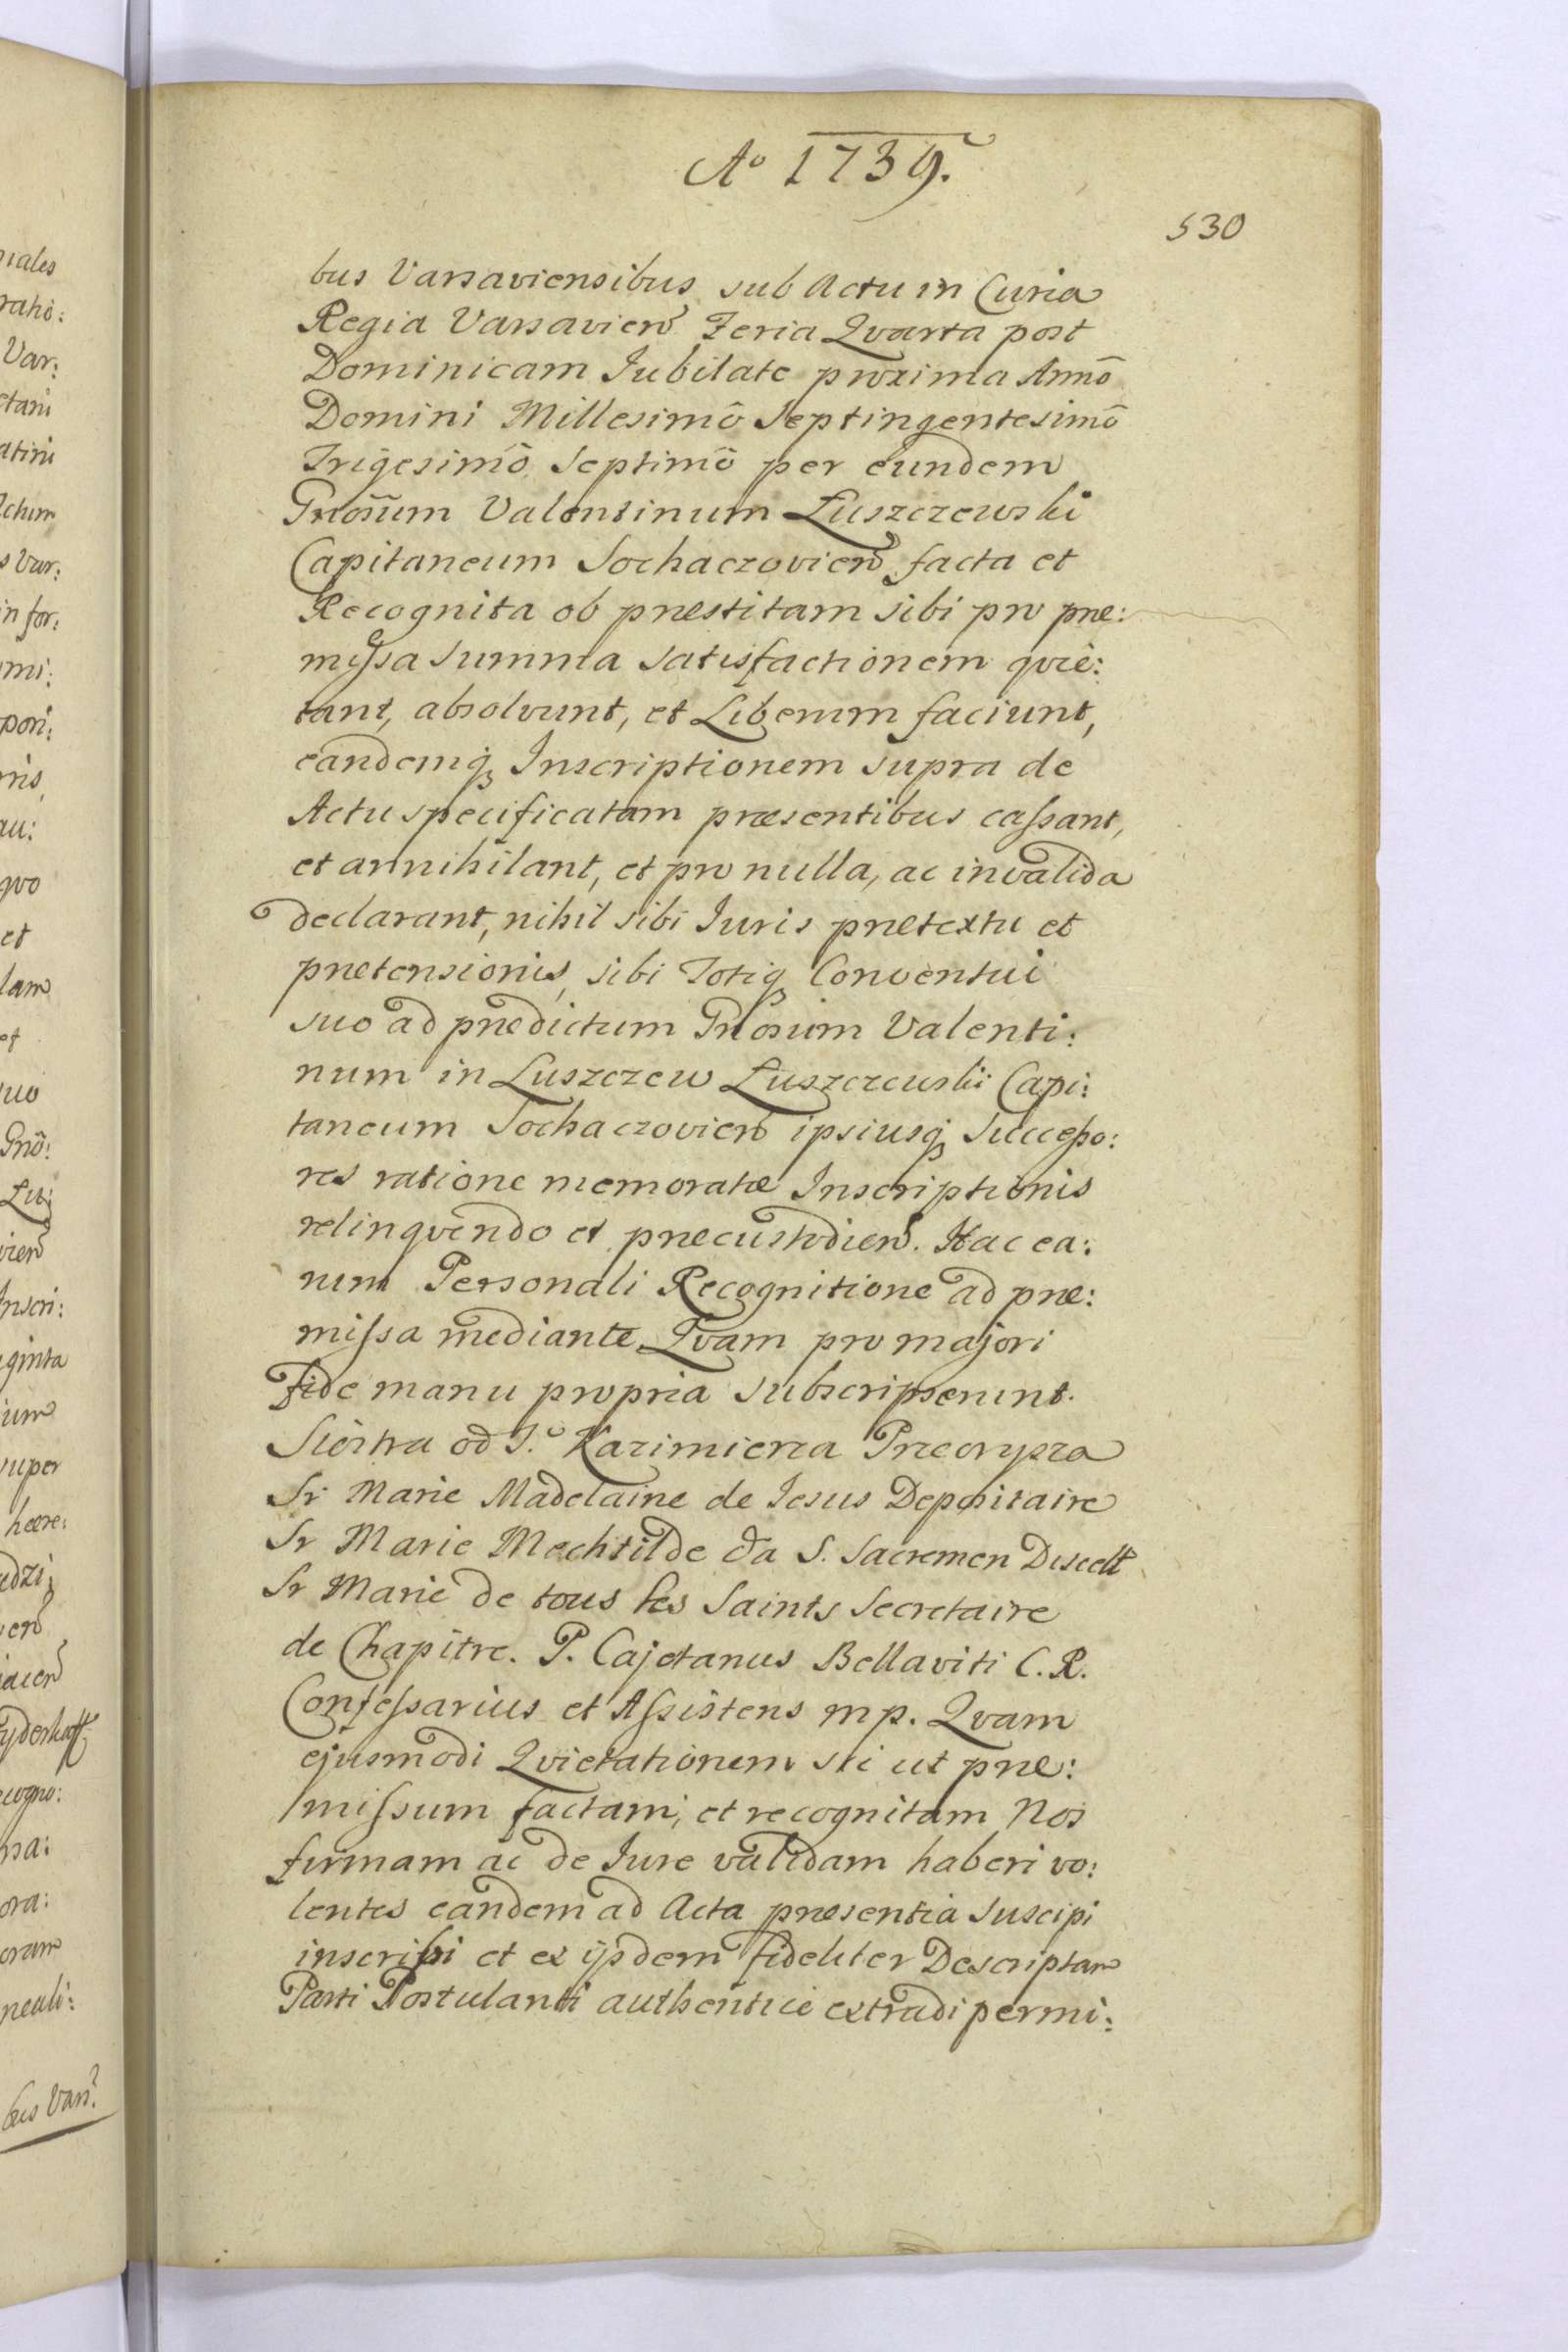 Aº 1739.
530
bus Varsaviensibus sub Actu in Curia
Regia Varsavien Feria Qvarta post
Dominicam Jubilate proxima Annô
Domini Millesimô Septingentesimô
Trigesimô Septimô per eundem
Gnosum Valentinum Łuszczewski
Capitaneum Sochaczovien facta et
Recognita ob præstitam sibi pro præ:
missa summa satisfactionem qvie:
tant, absolvunt, et Liberum faciunt,
eandemq Inscriptionem supra de
Actu specificatam præsentibus cassant,
et annihilant, et pro nulla, ac invalida
declarant, nihil sibi Juris prætextu et
prætensionis, sibi Totiq Conventui
suo ad prædictum Gnosum Valenti:
num in Łuszczew Łuszczewski Capi:
taneum Sochaczovien ipsiusq Successo:
res ratione memoratæ Inscriptionis
relinqvendo et præcustodien. Hac ea:
rum Personali Recognitione ad præ:
missa mediante, Qvam pro majori
fide manu propria subscripserunt.
Siostra od J. Kazimierza Przeorysza
Sr Marie Madelaine de Jesus Depositaire
Sr Marie Mechtilde da S. Sacremen Discett
Sr Marie de tous les Saints Secretaire
de Chapitre. P. Cajetanus Bellaviti C. R.
Confessarius et Assistens mp. Qvam
ejusmodi Qvietationem sic ut præ:
missum factam, et recognitam Nos
firmam ac de Jure validam haberi vo:
lentes eandem ad Acta præsentia suscipi
inscribi et ex ijsdem fideliter Descriptam
Parti Postulanti authentice extradi permi: